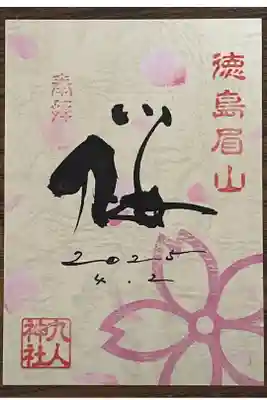 徳島眉山
奉拝
桜
2025
4.2
九人
神社